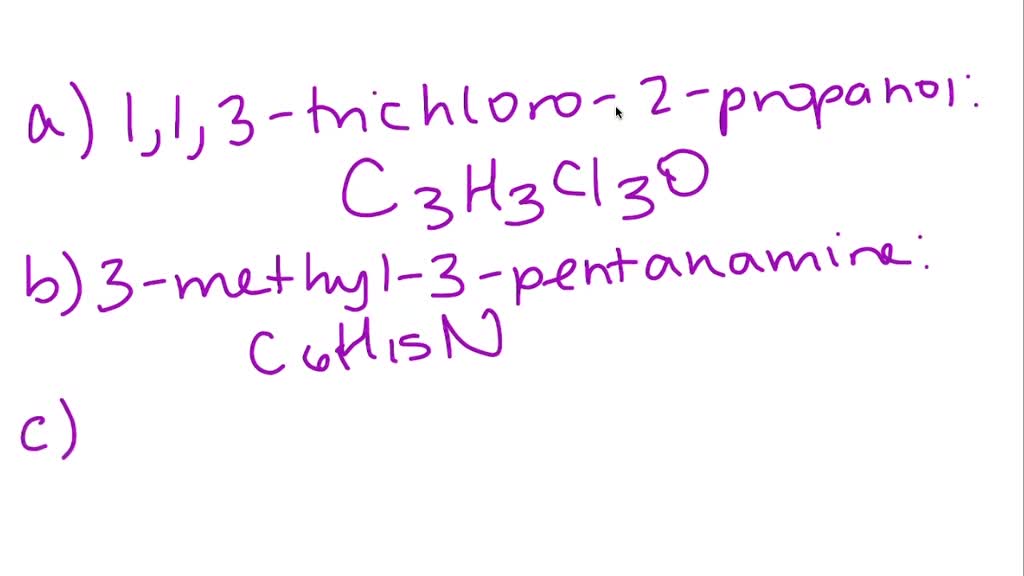 a) 1,1,3-trichloro-2-propanol:
C3H3Cl3O
b) 3-methyl-3-pentanamine:
C6H15N
c)